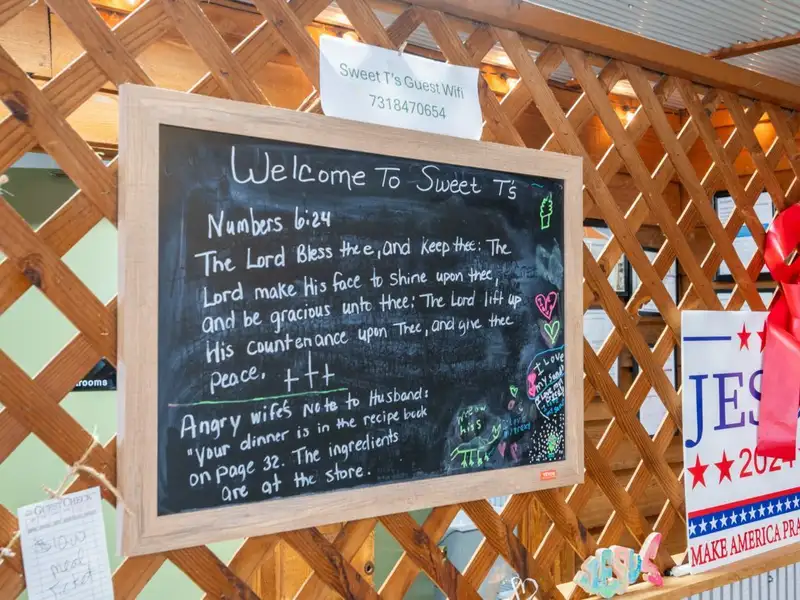 Sweet T's Guest Wifi
7318470654
Welcome To Sweet T's
Numbers 6:24
The Lord Bless thee, and keep thee: The
Lord make His face to shine upon thee,
and be gracious unto thee: The Lord lift up
His countenance upon Thee, and give thee
peace.
Angry wife's Note to Husband:
"Your dinner is in the recipe book
on page 32. The ingredients
are at the store.
I Love
my
rooms
Guest Check
meat
JES
2024
MAKE AMERICA PRA
JESUS